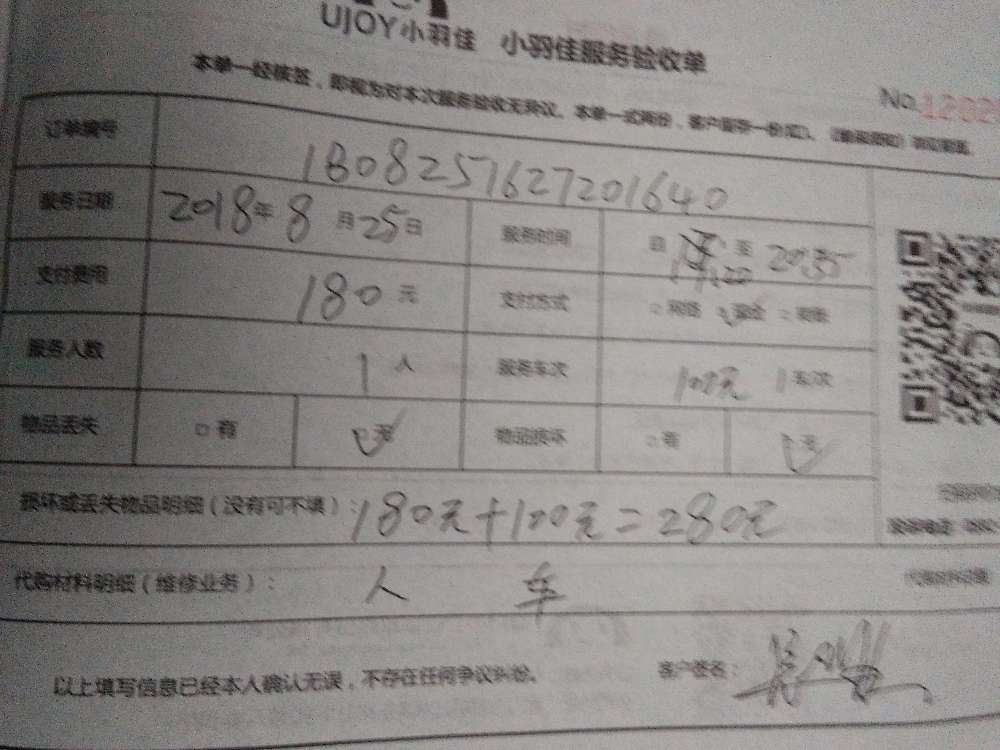 UJOY小羽佳 小羽佳服务验收单
本单一经核签，即视为对本次服务验收无异议。本单一式两份，客户留存一份
No.
订单编号 1808257627201640
服务日期 2018年8月25日 服务时间 自 至 20:35
支付费用 180元 支付方式 □ 网络 现金 □
服务人数 1人 服务车次 100元 1车/次
物品丢失 □有 无 物品损坏 □有 无
损坏或丢失物品明细（没有可不填）：180元+100元=280元
代购材料明细（维修业务）： 人 车
以上填写信息已经本人确认无误，不存在任何争议纠纷。 客户签名：